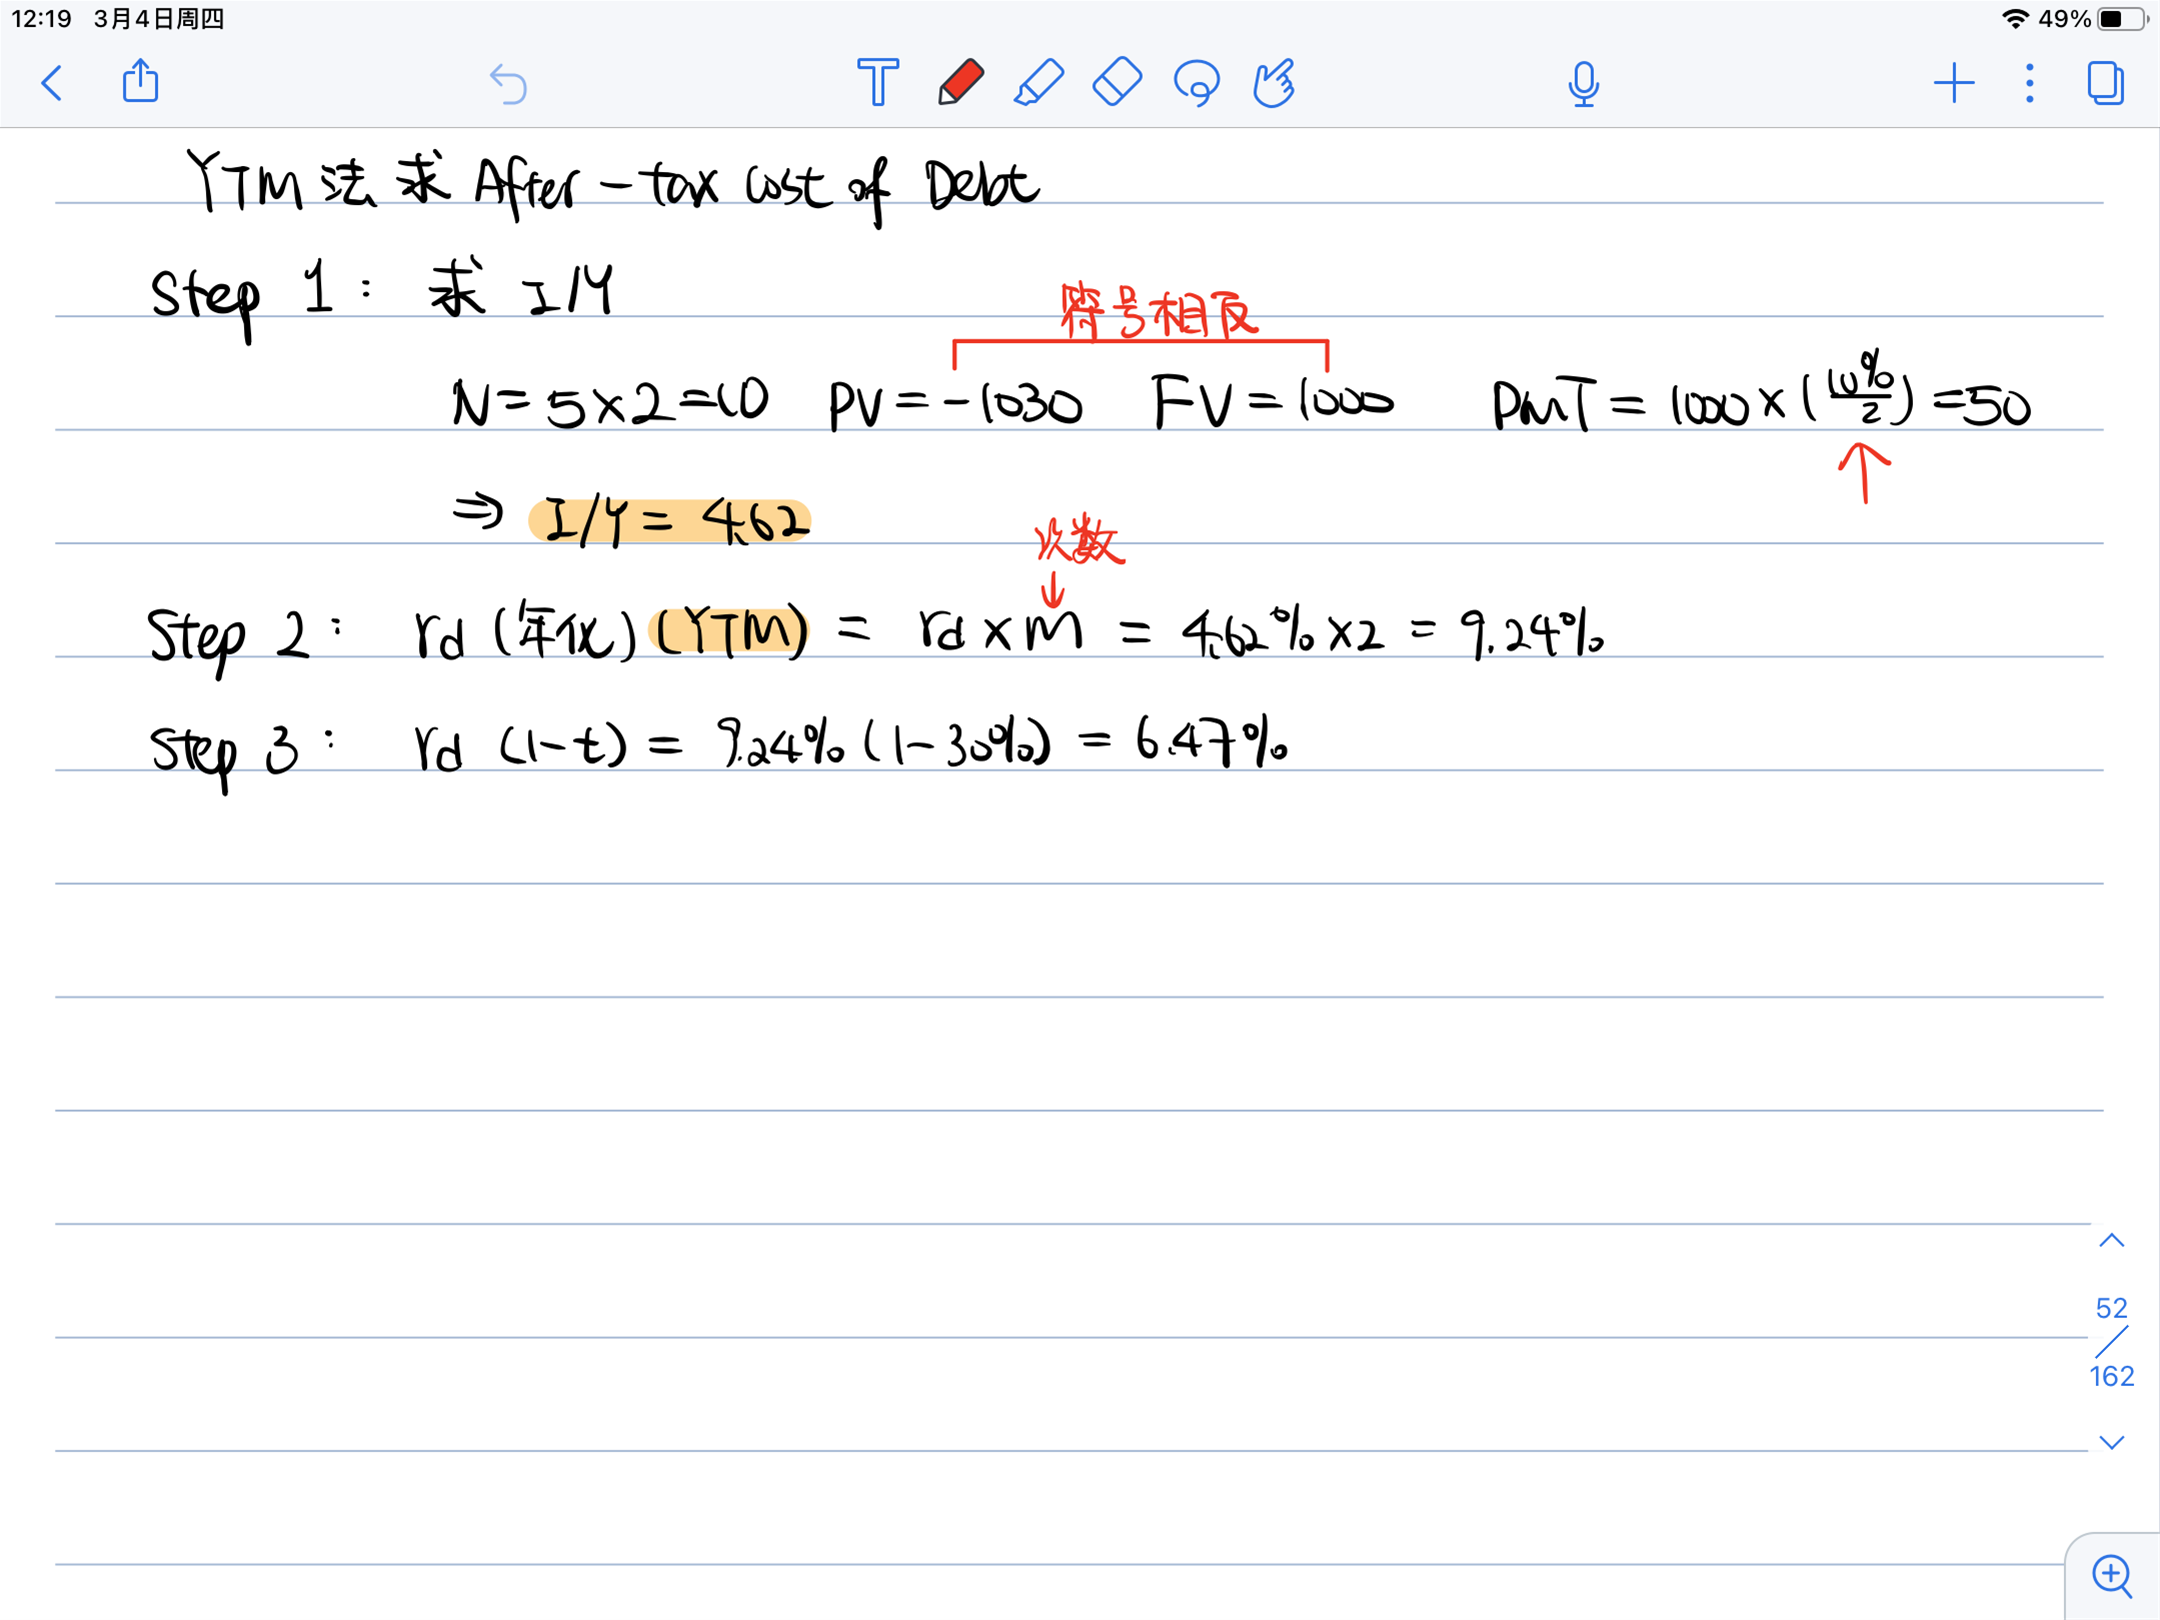 12:19 3月4日周四
49%
YTM法求 After-tax cost of Debt
Step 1: 求 I/Y
符号相反
N=5×2=10 PV=-1030 FV=1000 PMT=1000×(10%/2)=50
⇒ I/Y=4.62
次数
Step 2: rd (年化)(YTM) = rd×m = 4.62%×2 = 9.24%
Step 3: rd (1-t) = 9.24%(1-30%) = 6.47%
52
162